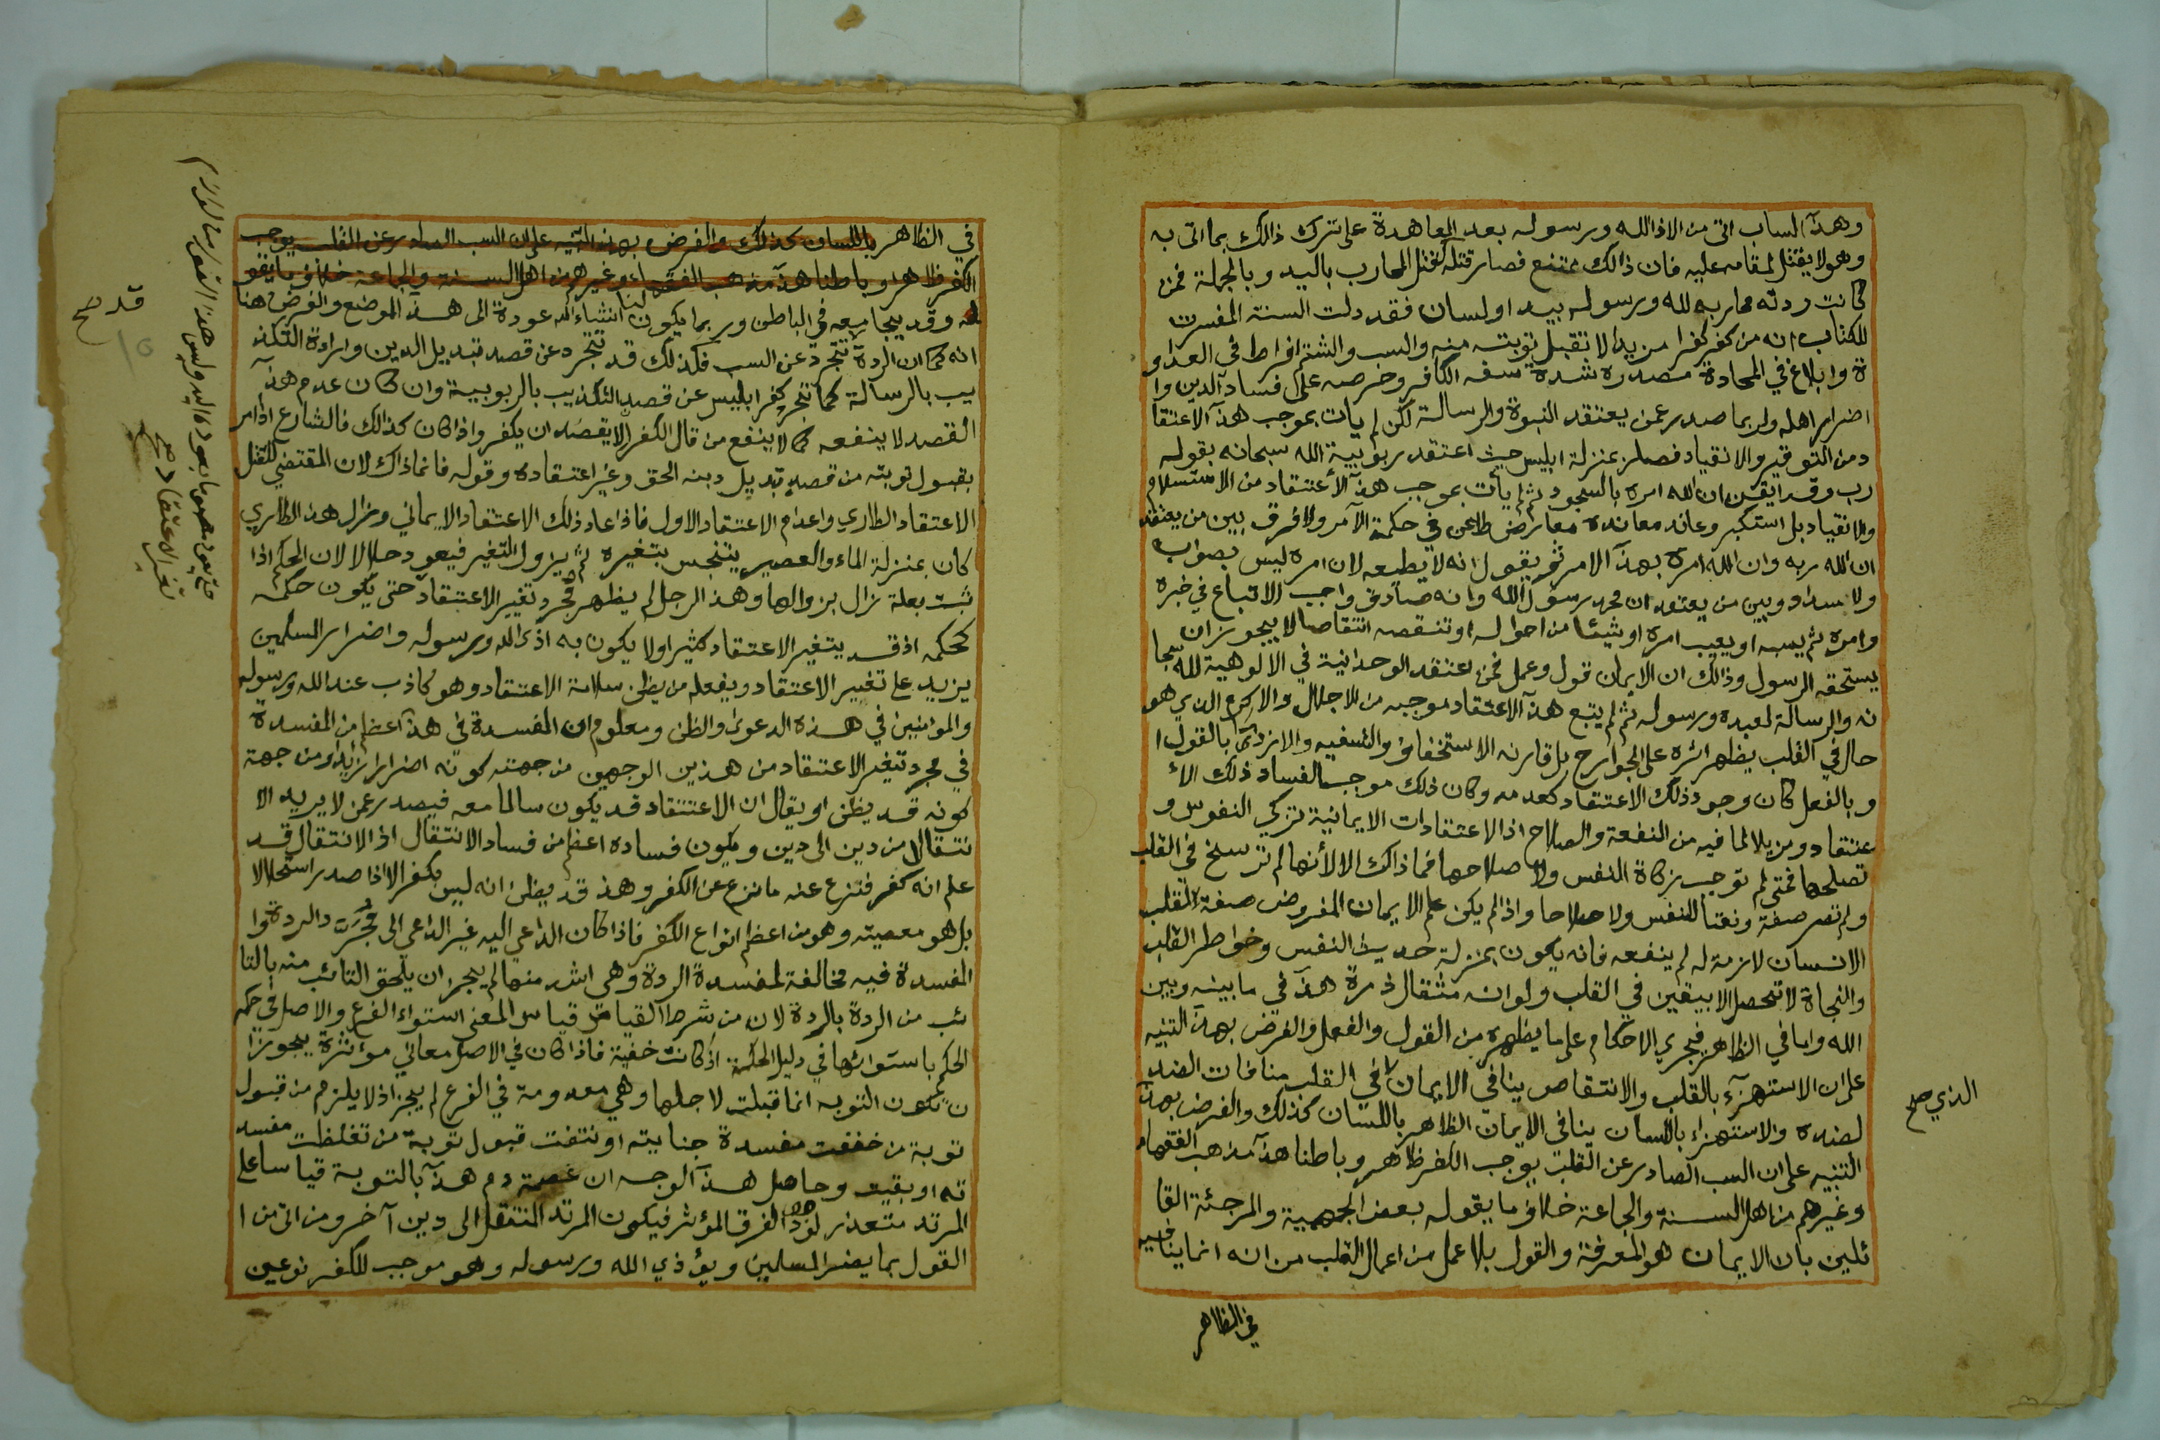 وهذا الساب اتى من الاذا لله ورسوله بعد المعاهدة على ترك ذالك بما اتى به
وهو لا يقتل لمقامه عليه فان ذالك ممتنع فصار قتله كقتل المحارب باليد وبالجملة فمن
كانت ردته محاربه لله ورسوله بيد او لسان فقد دلت السنة المفسرت
للكتاب انه من كفر كفرا مزيدا لا تقبل توبته منه والسب والشتم افراط في العداو
ة وابلاغ في المحادة مصدره شدة سفه الكافر وحرصه على فساد الدين وا
اضرار اهله ولربما صدر عمن يعتقد النبوة والرسالة لكن لم يات بموجب هذا الاعتقا
د من التوقير والانقياد فصار بمنزلة ابليس حيث اعتقد ربوبية الله سبحانه بقوله
رب وقد ايقن ان الله امره بالسجود ثم لم يأت بموجب هذا الأعتقاد من الاستسلام
والانقياد بل استكبر وعاند معاندة معارض طاعن في حكمة الآمر ولا فرق بين من يعتقد
ان الله ربه وان الله امره بهذا الامر ثم يقول انه لا يطيعه لان امره ليس بصواب
ولا سداد وبين من يعتقد ان محمد رسول الله وانه صادق واجب الاتباع في خبره
وامره ثم يسبه او يعيب امره او شيئا من احواله او تنقصه انتقاصا لا يجوز ان
يستحقه الرسول وذالك ان الايمان قول وعمل فمن اعتقد الوحدانية في الالوهية لله سبحا
نه والرسالة لعبده ورسوله ثم لم يتبع هذا الاعتقاد موجبه من الاجلال والاكرام الذي هو
حال في القلب يظهر اثره على الجوارح بل قارنه الاستخفاف والتسفيه والازدرا بالقول ا
و بالفعل كان وجود ذلك الاعتقاد كعدمه وكان ذلك موجبا لفساد ذلك الأ
عتقاد ومزيلا لما فيه من النفعة والصلاح اذ الاعتقادات الايمانية تزكي النفوس و
تصلحها فمتى لم توجب زكاة النفس ولا صلاحها فما ذالك الا لأنها لم ترسخ في القلب
ولم تصر صفة ونعتا للنفس ولا صلاحا واذا لم يكن علم الايمان المفروض صفة لقلب
الانسان لازمة له لم ينفعه فانه يكون بمنزلة حديث النفس وخواطر القلب
والنجاة لا تحصل الا بيقين في القلب ولو انه مثقال ذرة هذا في ما بينه وبين
الله واما في الظاهر فيجري الاحكام على ما يظهره من القول والفعل والغرض بهذا التنبه
على ان الاستهزآء بالقلب والانتقاص ينافي الايمان في القلب منافات الضد
الذي صح
لضده والاستهزاء باللسان ينافي الايمان الظاهر باللسان كذلك والغرض بهذا
التنبيه على ان السب الصادر عن القلب يوجب الكفر ظاهر وباطنا هذا مذهب الفقهاء
وغيرهم من اهل السنة والجماعة خلاف ما يقوله بعض الجهمية والمرجئة القا
ئلين بان الايمان هو المعرفة والقول بلا عمل من اعمال القلب من انه انما ينافيه
في الظاهر
في الظاهر باللسان كذلك والغرض بهذا التنبيه على ان السب الصادر عن القلب يوجب
الكفر ظاهر وباطنا هذا مذهب الفقهاء وغيرهم من اهل السنة والجماعة خلاف ما يقو
له وقد يجامعه في الباطن وربما يكون لنا انشاء الله عودة الى هذا الموضع والغرض هنا
انه كما ان الردة تتجرد عن السب فكذلك قد تتجرد عن قصد تبديل الدين وارادة التكذ
يب بالرسالة كما تجرد كفر ابليس عن قصد التكذيب بالربوبية وان كان عدم هذا
القصد لا ينفعه كما لا ينفع من قال الكفر الا يقصد ان يكفر واذا كان كذالك فالشارع اذا مر
بقبول توبته من قصد تبديل دينه الحق وغير اعتقاده وقوله فانما ذاك لان المقتضي للقتل
الاعتقاد الطاري واعدام الاعتقاد الاول فاذا عاد ذلك الاعتقاد الايماني وزال هذا الطاري
كان بمنزلة الماء والعصير يتنجس بتغيره ثم يزول التغير فيعود حلالا لان الحكم اذا
ثبت بعلة زال بزوالها وهذا الرجل لم يظهر مجرد تغير الاعتقاد حتى يكون حكمه
كحكمه اذ قد يتغير الاعتقاد كثيرا ولا يكون به اذى الله ورسوله واضرار المسلمين
يزيد على تغيير الاعتقاد ويفعله من يظن سلامة الاعتقاد وهو كاذب عند الله ورسوله
والمؤمنين في هذه الدعوى والظن ومعلوم ان المفسدة في هذا اعظم من المفسدة
في مجرد تغير الاعتقاد من هذين الوجهين من جهته كونه اضرارا زايدا ومن جهة
كونه قد يظن او يقال ان الاعتقاد قد يكون سالما معه فيصدر عمن لا يريد الا
نتقال من دين الى دين ويكون فساده اعظم من فساد الانتقال اذ الانتقال قد
علم انه كفر فنزع عنه ما نزع عن الكفر وهذا قد يظن انه ليس بكفر الا اذا صدر استحلالا
بل هو معصيته وهو من اعظم انواع الكفر فاذا كان الداعي اليه غير الداعي الى مجرد الردة وا
لمفسدة فيه مخالفة لمفسدة الردة وهي اشد منها لم يجز ان يلحق التائب منه بالتا
ئب من الردة بالردة لان من شرط القياس قياس المعنى استواء الفرع والاصل في حكمة
الحكم باستوائها في دليل الحكمة اذ كانت خفية فاذا كان في الاصل معاني مؤثرة يجوز ا
ن تكون التوبه انما قبلت لاجلها وهي معدومة في الفرع لم يجز اذ لا يلزم من قبول
توبة من خففت مفسدة جنايته او نتفت قبول توبة من تغلظت مفسد
ته او بقيت وحاصل هذا الوجه ان عصمة دم هذا بالتوبة قياسا على
المرتد متعذر لوجود الفرق المؤثر فيكون المرتد المنتقل الى دين آخر ومن اتى من ا
القول بما يضر المسلمين ويؤذي الله ورسوله وهو موجب للكفر نوعين
قد صح
تغير الاعتقاد صح